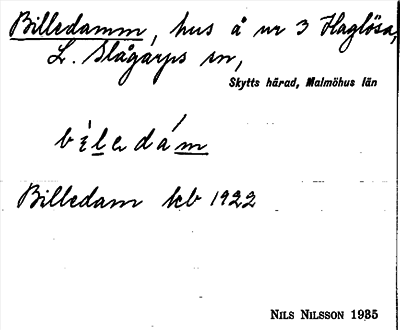 Billedamm, hus å nr 3 Haglösa,
L. Slågarps sn,
Skytts härad, Malmöhus län
bíledám
Billedam kb 1922
NILS NILSSON 1935